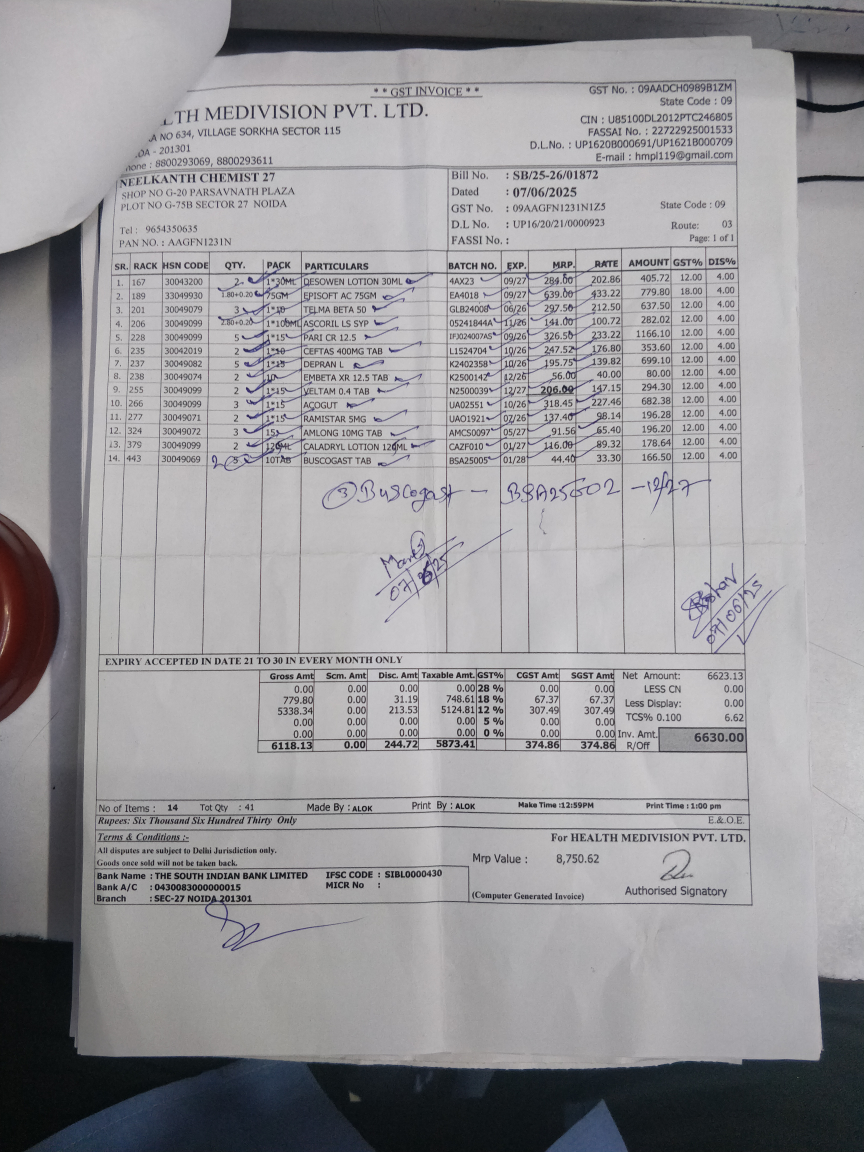 ** GST INVOICE **
GST No. : 09AADCH0989B1ZM
State Code : 09
LTH MEDIVISION PVT. LTD.
CIN : U85100DL2012PTC246805
A NO 634, VILLAGE SORKHA SECTOR 115
FASSAI No. : 22722925001533
DA - 201301
D.L.No. : UP1620B000691/UP1621B000709
one : 8800293069, 8800293611
E-mail : hmpl119@gmail.com
NEELKANTH CHEMIST 27
SHOP NO G-20 PARSAVNATH PLAZA
PLOT NO G-75B SECTOR 27 NOIDA
Tel : 9654350635
PAN NO. : AAGFN1231N
Bill No. : SB/25-26/01872
Dated : 07/06/2025
GST No. : 09AAGFN1231N1Z5 State Code : 09
D.L No. : UP16/20/21/0000923 Route: 03
FASSI No. : Page: 1 of 1
SR. RACK HSN CODE QTY. PACK PARTICULARS BATCH NO. EXP. MRP. RATE AMOUNT GST% DIS%
1. 167 30043200 2 1*30ML DESOWEN LOTION 30ML 4AX23 09/27 284.00 202.86 405.72 12.00 4.00
2. 189 33049930 1.80+0.20 75GM EPISOFT AC 75GM EA4018 09/27 639.00 433.22 779.80 18.00 4.00
3. 201 30049079 3 1*10 TELMA BETA 50 GLB24008 06/26 297.50 212.50 637.50 12.00 4.00
4. 206 30049099 2.80+0.20 1*100ML ASCORIL LS SYP 05241844A 11/26 141.00 100.72 282.02 12.00 4.00
5. 228 30049099 5 1*15 PARI CR 12.5 IFJ024007AS 09/26 326.50 233.22 1166.10 12.00 4.00
6. 235 30042019 2 1*10 CEFTAS 400MG TAB L1S24704 10/26 247.52 176.80 353.60 12.00 4.00
7. 237 30049082 5 1*15 DEPRAN L K2402358 10/26 195.75 139.82 699.10 12.00 4.00
8. 238 30049074 2 10 EMBETA XR 12.5 TAB K2500142 12/26 56.00 40.00 80.00 12.00 4.00
9. 255 30049099 2 1*15 VELTAM 0.4 TAB N2500039 12/27 206.00 147.15 294.30 12.00 4.00
10. 266 30049099 3 1*15 ACOGUT UA02551 10/26 318.45 227.46 682.38 12.00 4.00
11. 277 30049071 2 1*15 RAMISTAR 5MG UAO1921 07/26 137.40 98.14 196.28 12.00 4.00
12. 324 30049072 3 15 AMLONG 10MG TAB AMCS0097 05/27 91.56 65.40 196.20 12.00 4.00
13. 379 30049099 2 120ML CALADRYL LOTION 120ML CAZF010 01/27 116.00 89.32 178.64 12.00 4.00
14. 443 30049069 2 5 10TAB BUSCOGAST TAB BSA25005 01/28 44.40 33.30 166.50 12.00 4.00
3 Buscogast - BSA25002 -12/27
07/06/25
07/06/25
EXPIRY ACCEPTED IN DATE 21 TO 30 IN EVERY MONTH ONLY
Gross Amt Scm. Amt Disc. Amt Taxable Amt. GST% CGST Amt SGST Amt
0.00 0.00 0.00 0.00 28 % 0.00 0.00
779.80 0.00 31.19 748.61 18 % 67.37 67.37
5338.34 0.00 213.53 5124.81 12 % 307.49 307.49
0.00 0.00 0.00 0.00 5 % 0.00 0.00
0.00 0.00 0.00 0.00 0 % 0.00 0.00
6118.13 0.00 244.72 5873.41 374.86 374.86
Net Amount: 6623.13
LESS CN 0.00
Less Display: 0.00
TCS% 0.100 6.62
Inv. Amt. 6630.00
R/Off
No of Items : 14 Tot Qty : 41 Made By : ALOK Print By : ALOK Make Time :12:59PM Print Time : 1:00 pm
Rupees: Six Thousand Six Hundred Thirty Only E.& O.E.
Terms & Conditions :-
All disputes are subject to Delhi Jurisdiction only.
Goods once sold will not be taken back.
For HEALTH MEDIVISION PVT. LTD.
Mrp Value : 8,750.62
Bank Name : THE SOUTH INDIAN BANK LIMITED IFSC CODE : SIBL0000430
Bank A/C : 0430083000000015 MICR No :
Branch : SEC-27 NOIDA 201301
(Computer Generated Invoice)
Authorised Signatory